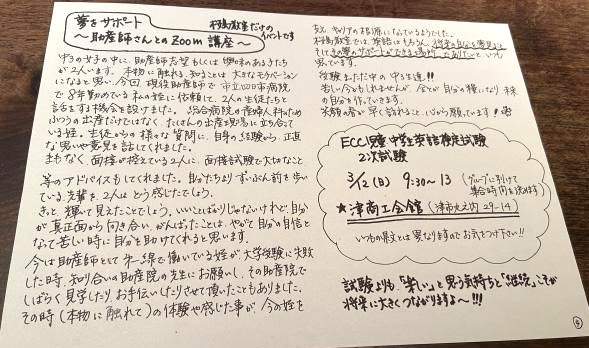 夢をサポート
〜助産師さんとのZoom講座〜
教室だけの
イベントです
中3の女子の中に、助産師志望もしくは興味のあるきたち
が2人います。本物に触れる、知ることは大きなモチベーション
になると思い、今回、現役助産師で市立四日市病院
で8年勤めている私の姪に依頼して、2人の生徒たちと
話をする機会を設けました。総合病院の産婦人科のため
ふつうの出産だけではなく、たくさんの出産現場に立ち会って
いる姪。生徒からの様々な質問に、自身の経験から、正直
な思いや意見を話してくれました。
まもなく、面接が控えている2人に、面接試験で大切なこと
等のアドバイスもしてくれました。自分たちより、ずいぶん前を歩い
ている先輩を、2人はどう感じたでしょう。
きっと、輝いて見えたことでしょう。いいことばかりじゃないけれど、自分
が真正面から向き合い、がんばったことは、やがて自分の自信と
なって苦しい時に自分を助けてくれると思います。
今は助産師として第一線で働いている姪が大学受験に失敗
した時、知り合いの助産院の先生にお願いし、その助産院で
しばらく見学したり、お手伝いしたりさせて頂いたこともありました。
その時（本物に触れて）の体験や感じた事が、今の姪を
キャリアの根源になっているようでした。
教室では、英語はもちろん、将来の自分を夢見
その夢のサポートができる場所でありたいといつも
思っています。
受験まっただ中の中3生達!!
苦しい今かもしれませんが、全てが自分の糧になり、未来
の自分を作っていきます。
笑顔の春が早く訪れること、心から願っています!!
ECC児童・中学生英語検定試験
2次試験
3/12(日) 9:30〜13
(グループに分けて
集合時間を決めます)
★津商工会館(津市丸之内29-14)
いつもの県文とは異なりますのでお気をつけ下さい!!
試験よりも「楽しい」と思う気持ちと「継続」こそが
将来に大きくつながりますよ〜!!!